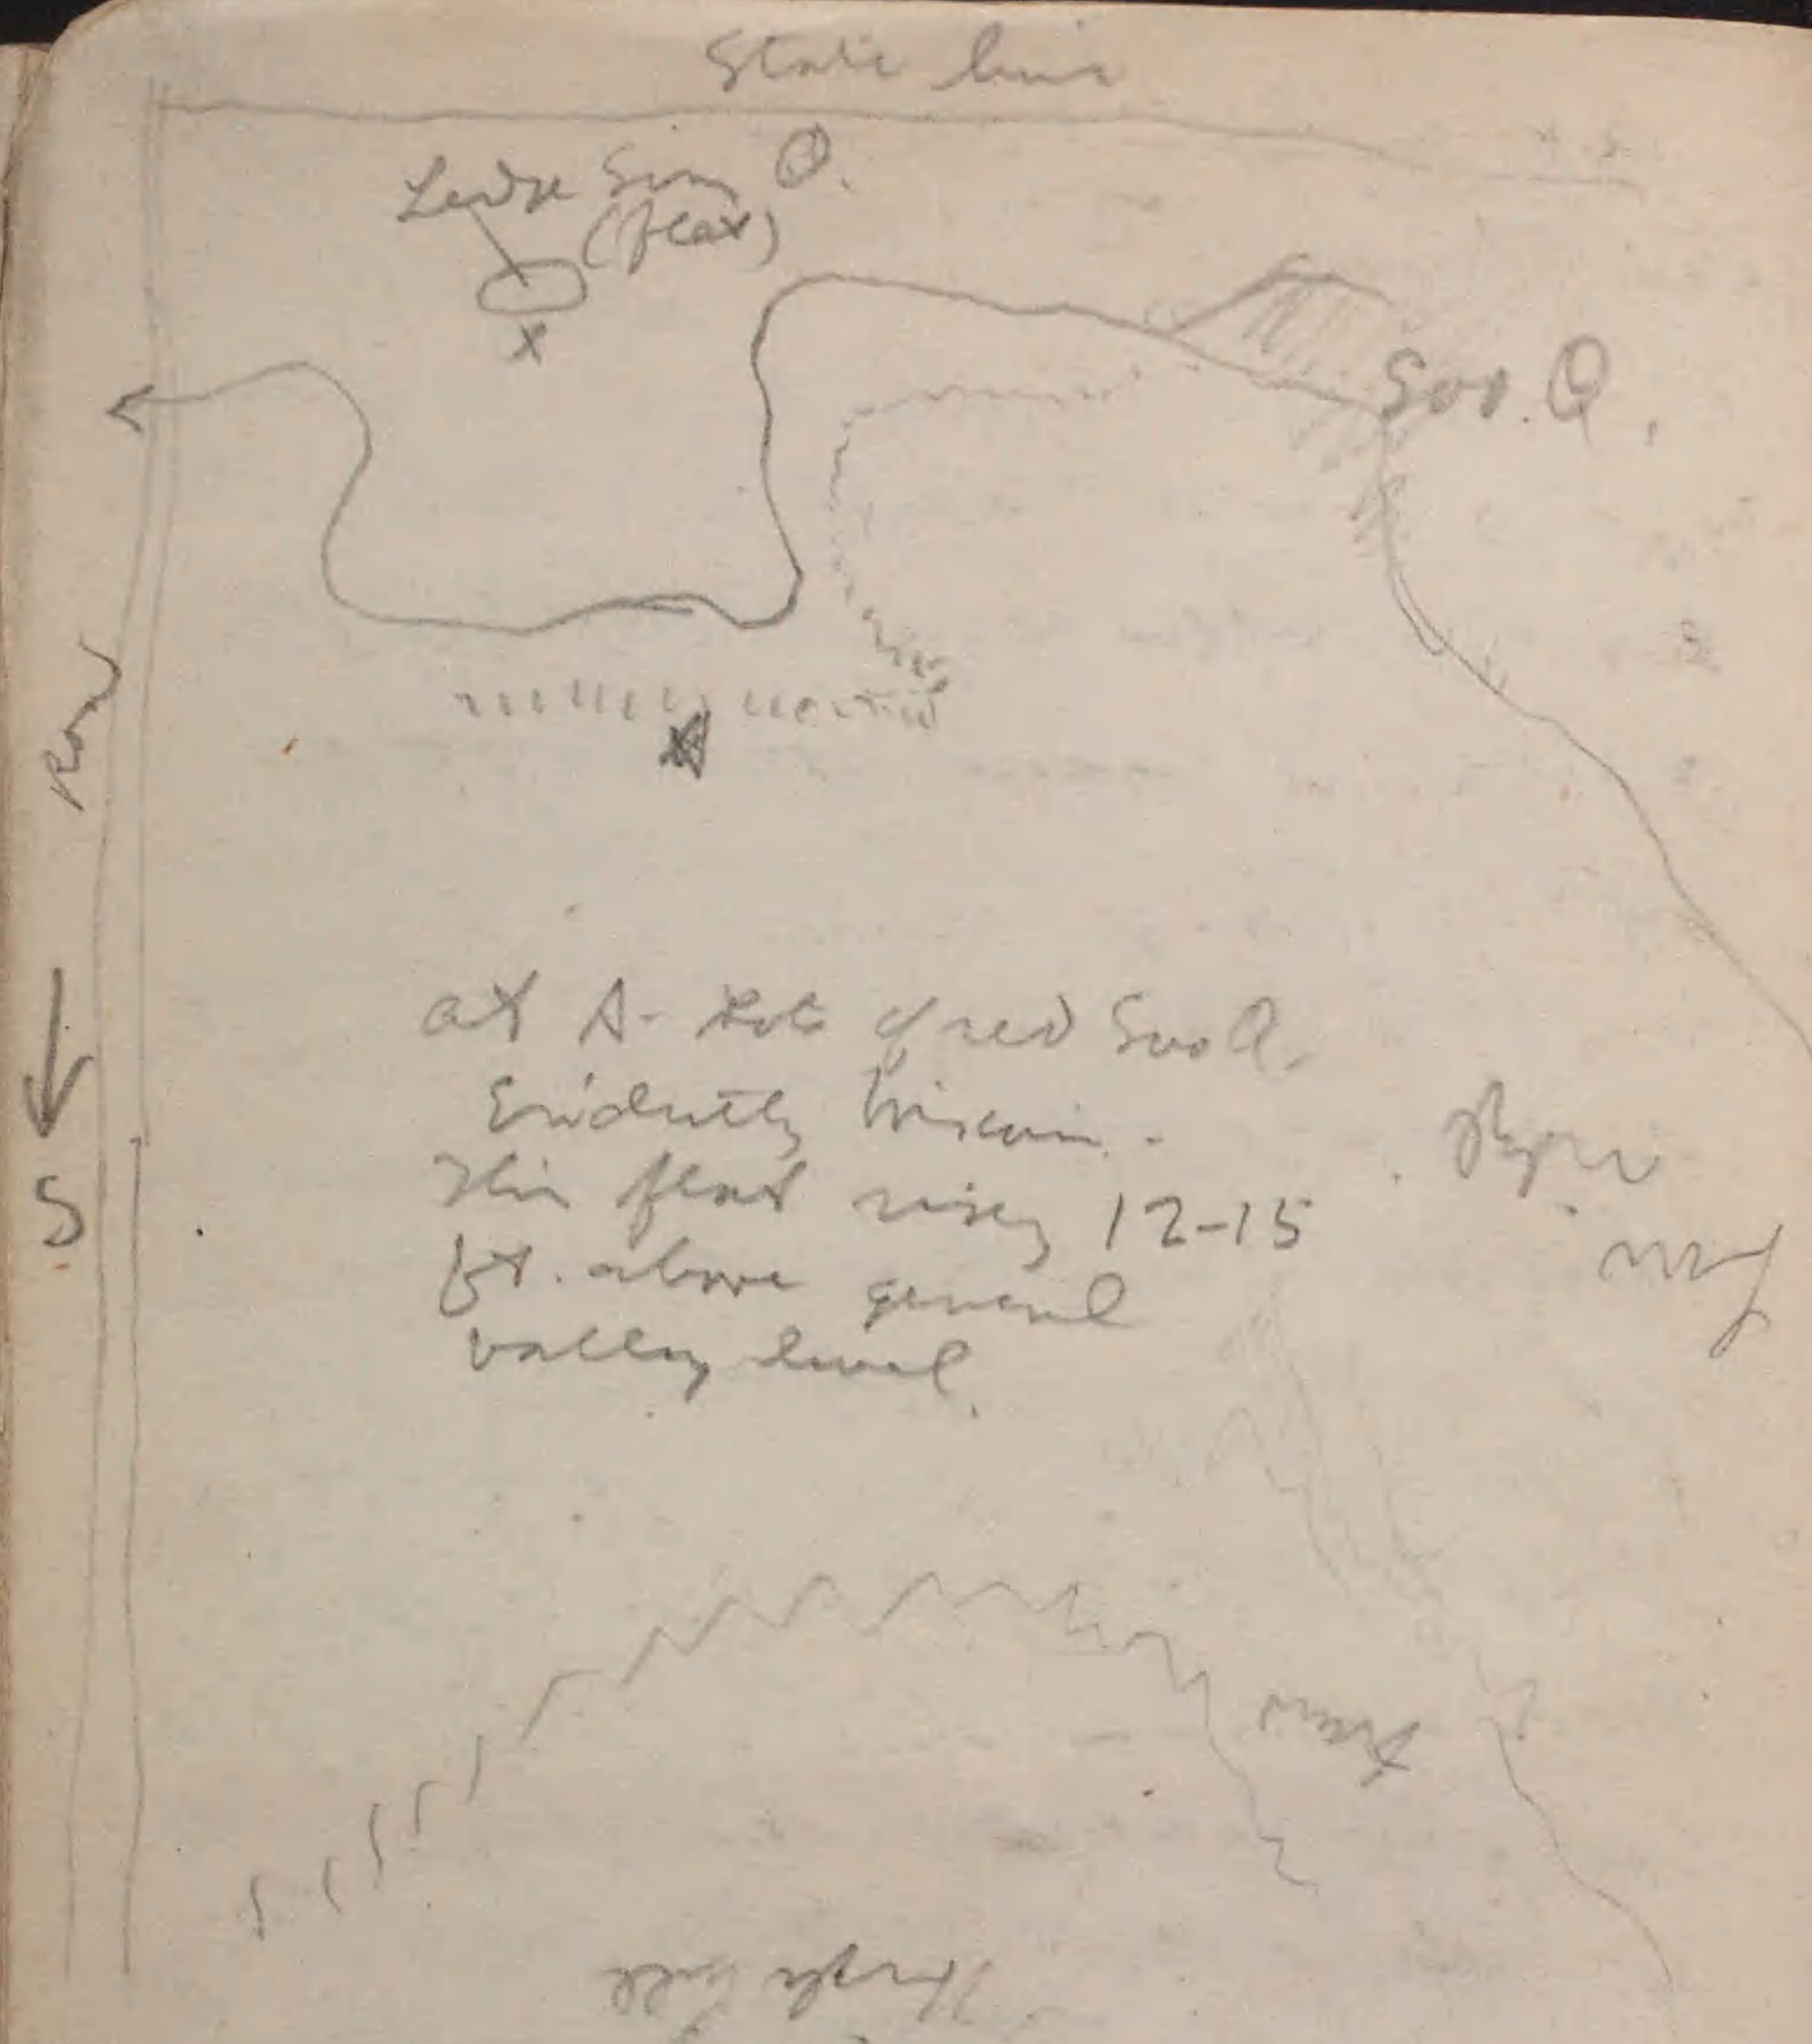 State line
Ledge Sioux Q.
(flat)
X
Soo. Q.
Road
A
S
at A - Lots of red Soo Q.
Evidently
This flat rises 12-15
ft. above general
valley level.
River
High hill